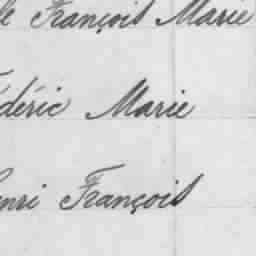 le François Marie
édéric Marie
enri François